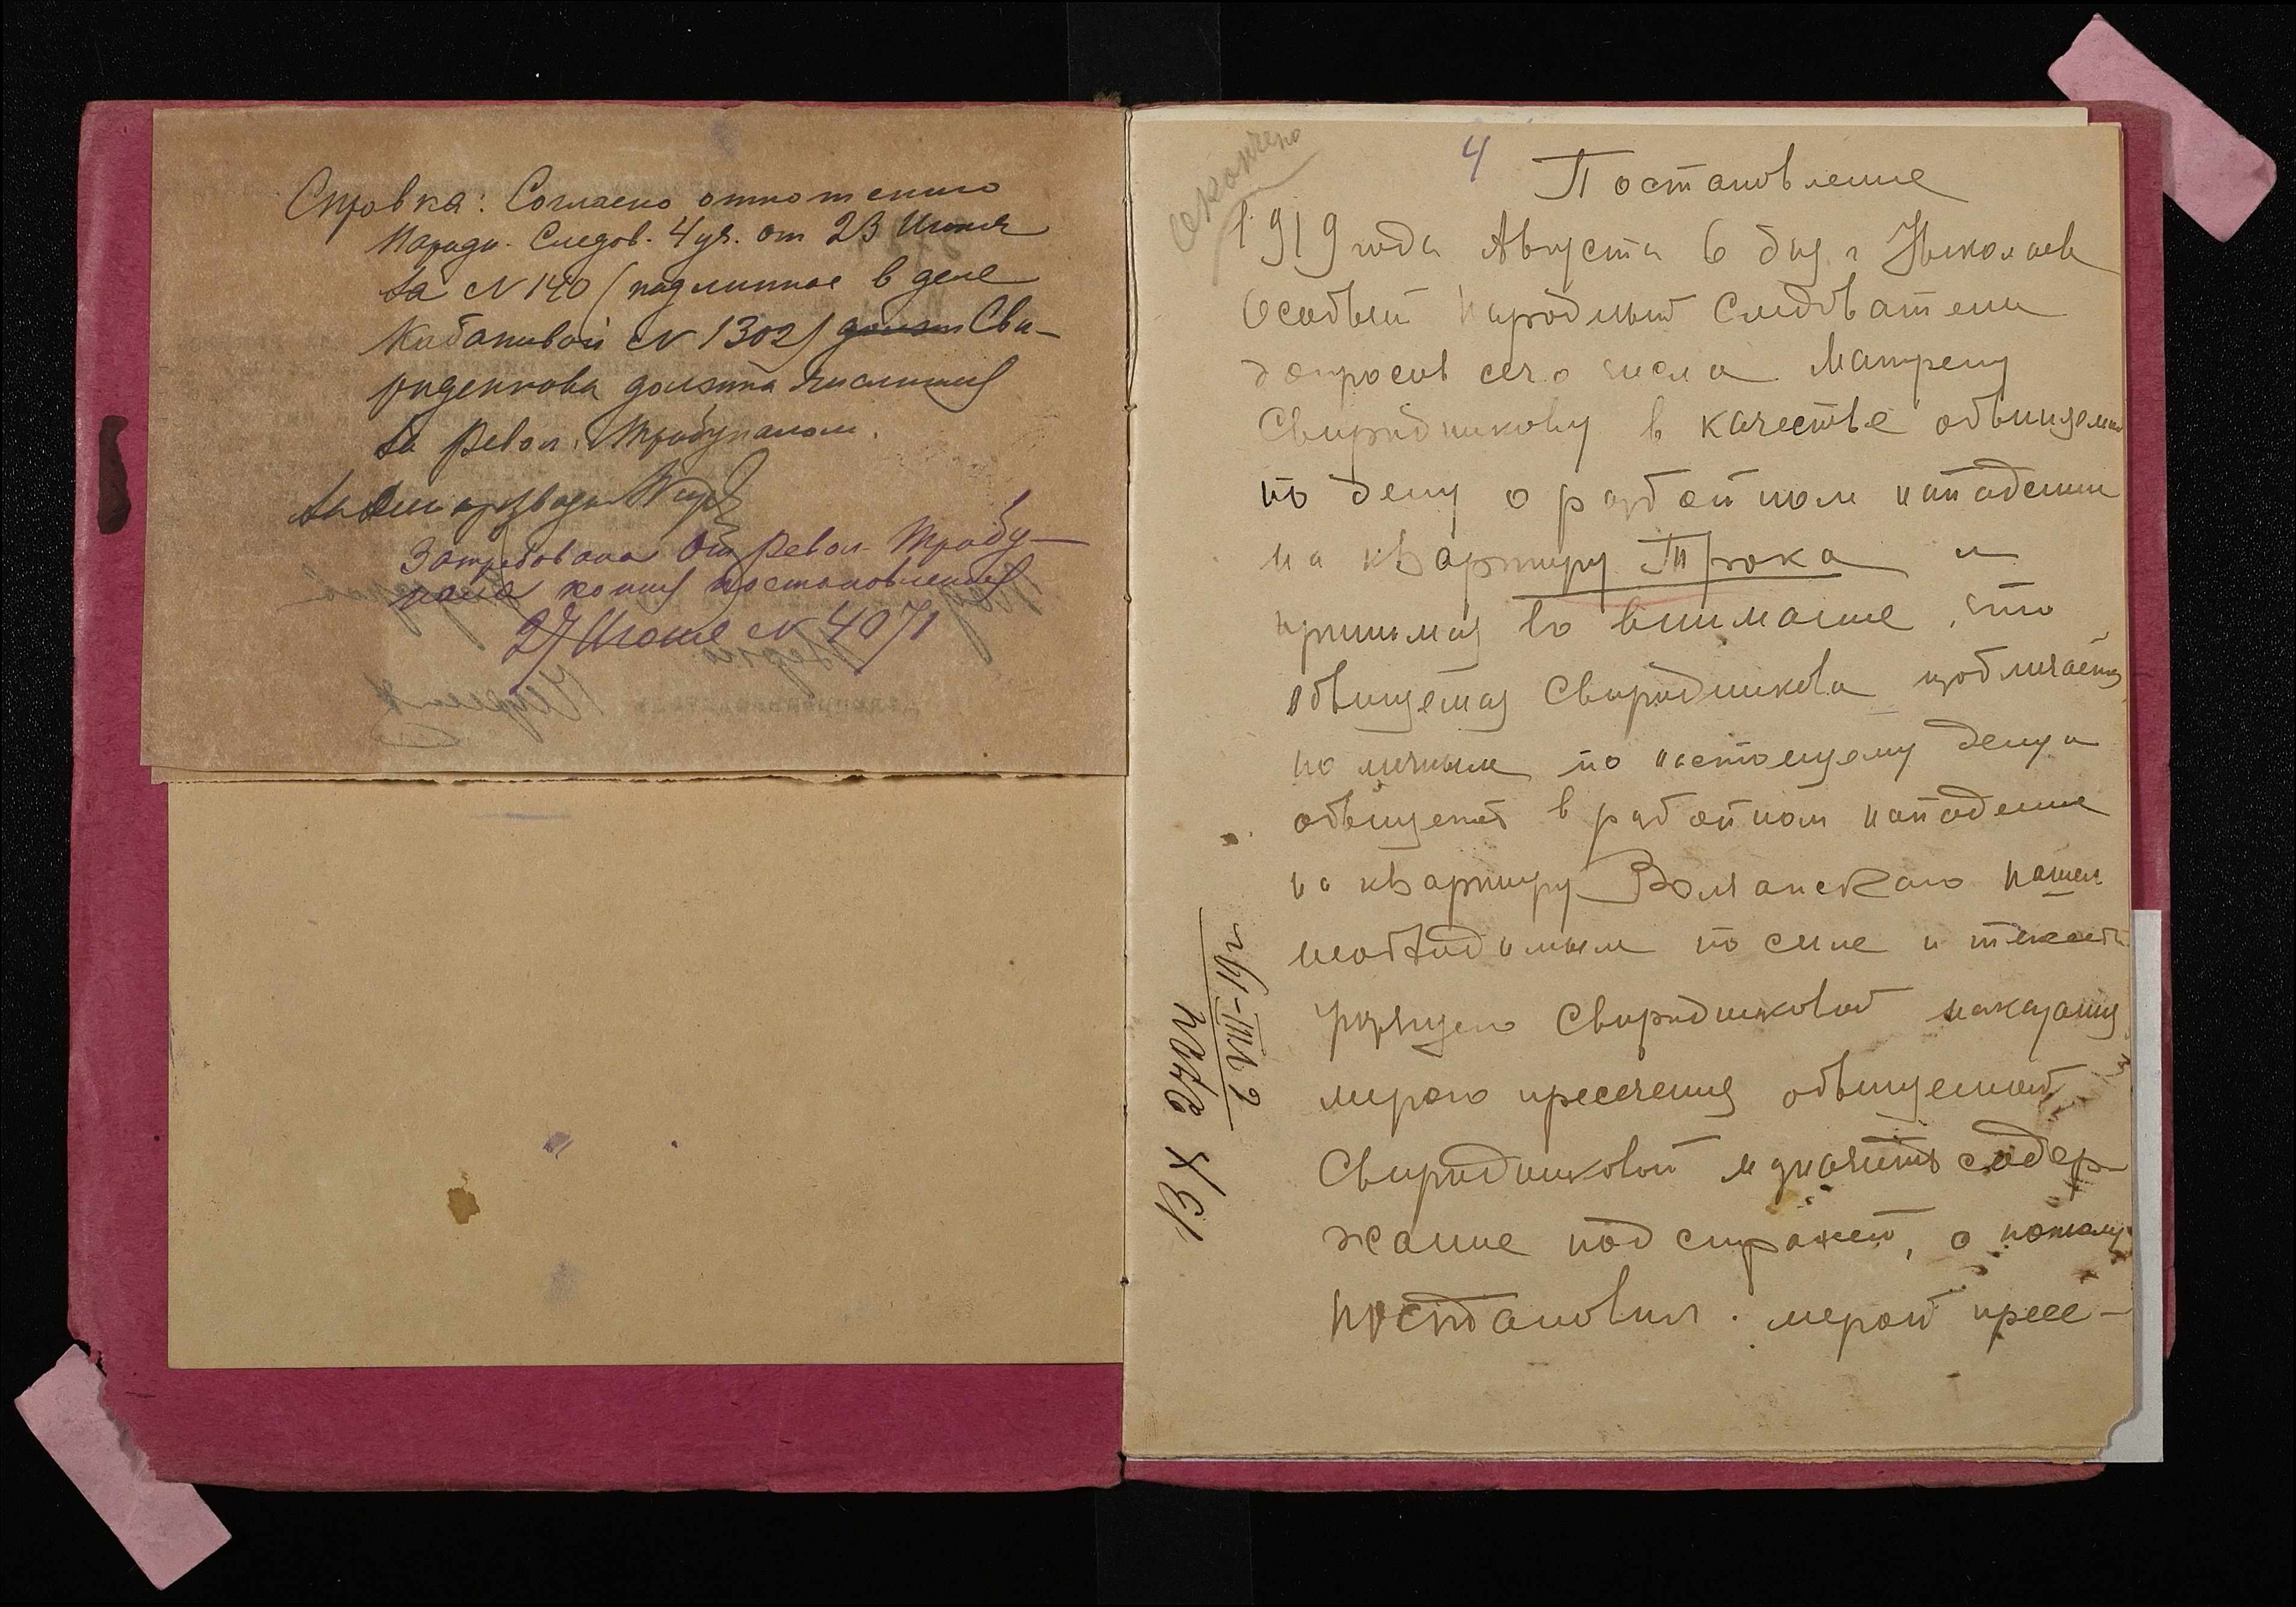 Справка: Согласно отношению
Народн. Следов. 4 уч. от 23 Июня
за № 140 (подлинное в деле
Кабановой № 1302) должн Сви-
риденкова должна числиться
за Револ. Трибуналом.
Затребована от Револ. Трибу-
нала копия постановления
27 Июня № 4071
4
Постановление
1919 года Августа 6 дня г Николаев
Особый Народный Следователь
допросив сего числа Матрену
Свиридникову в качестве обвиняемой
по делу о разбойном нападении
на квартиру Трока и
принимая во внимание, что
обвиняемая Свиридникова изобличается
по настоящему делу и
обвиняет в разбойном нападении
на квартиру Волянскаго нашел
необходимым по силе и тяжести
Свиридниковой наказания
мерою пресечения обвиняемой
Свиридниковой назначить содер-
жание под стражей, а потому
постановил: мерой пресе-
2 VIII-19 г